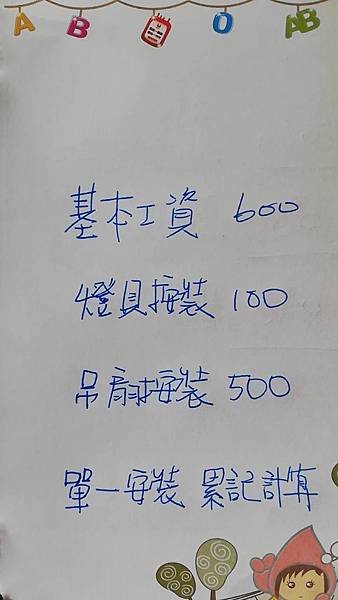 A B O AB
基本工資 600
燈具按裝 100
吊扇按裝 500
單一安裝 累記計算